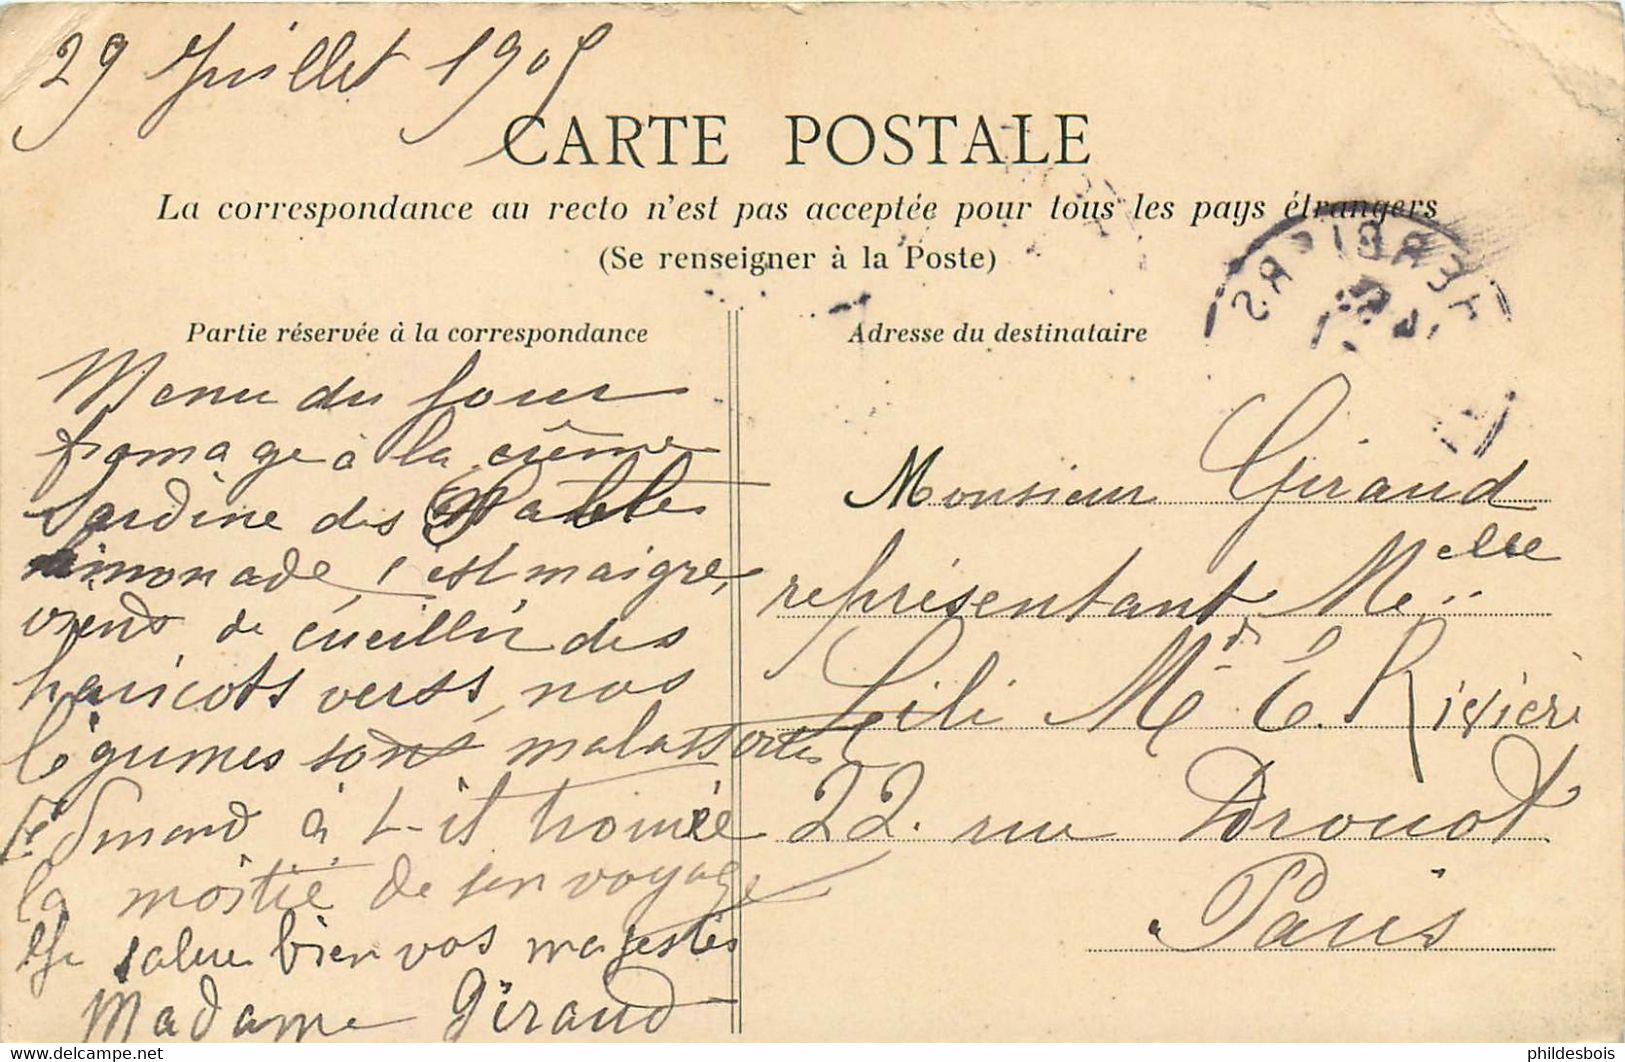 29 Juillet 1905
CARTE POSTALE
La correspondance au recto n'est pas acceptée pour tous les pays étrangers
(Se renseigner à la Poste)
HERBIERS
Partie réservée à la correspondance
Menu du Jour
fromage à la crême
Sardine des Sables
limonade, c'est maigre,
viens de cueillir des
haricots verts, nos
légumes sont mal assortis
Edmond à t-il trouvée
la moitié de son voyage
Je salue bien vos majestés
Madame Giraud
Adresse du destinataire
Monsieur Giraud
représentant Melle
Lili Md E. Rivière
22. rue Drouot
Paris
phildesbois